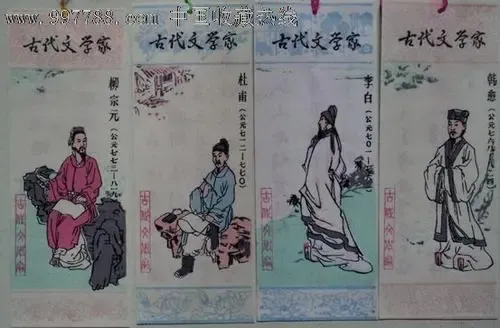 www.997788.com 中国收藏热线
古代文学家
柳宗元(公元七七三-八一九)
古代文学家
杜甫(公元七一二-七七〇)
古代文学家
李白(公元七〇一-
古代文学家
韩愈(公元七六八-